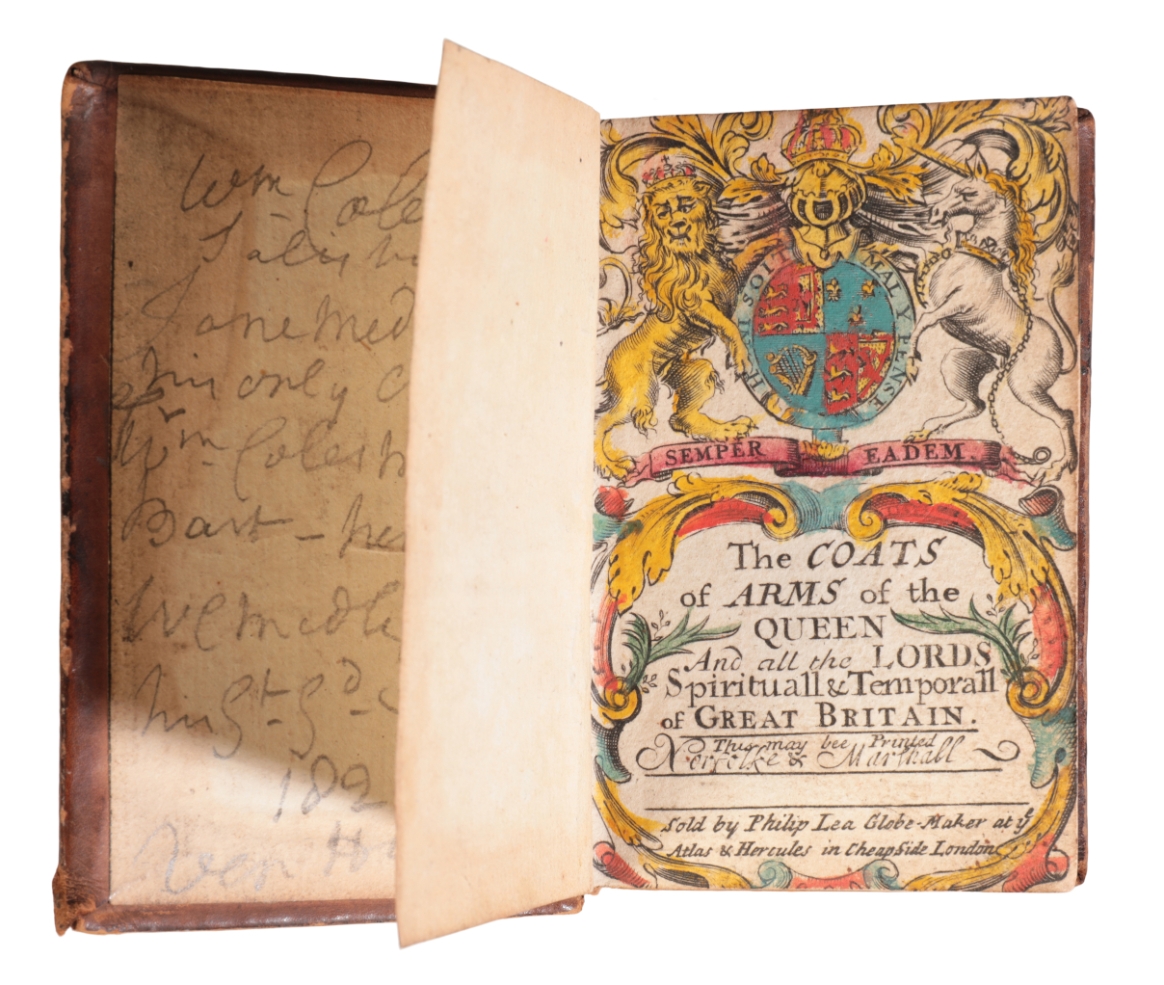 Wm Coles
Jane Med
his only
Wm Colesh
Bart - 
182
HONI SOIT MAL Y PENSE
SEMPER EADEM.
The COATS
of ARMS of the
QUEEN
And all the LORDS
Spirituall & Temporall
of GREAT BRITAIN.
This may bee Printed
Norfolke & Marshall
Sold by Philip Lea Globe-Maker at ye
Atlas & Hercules in CheapSide London